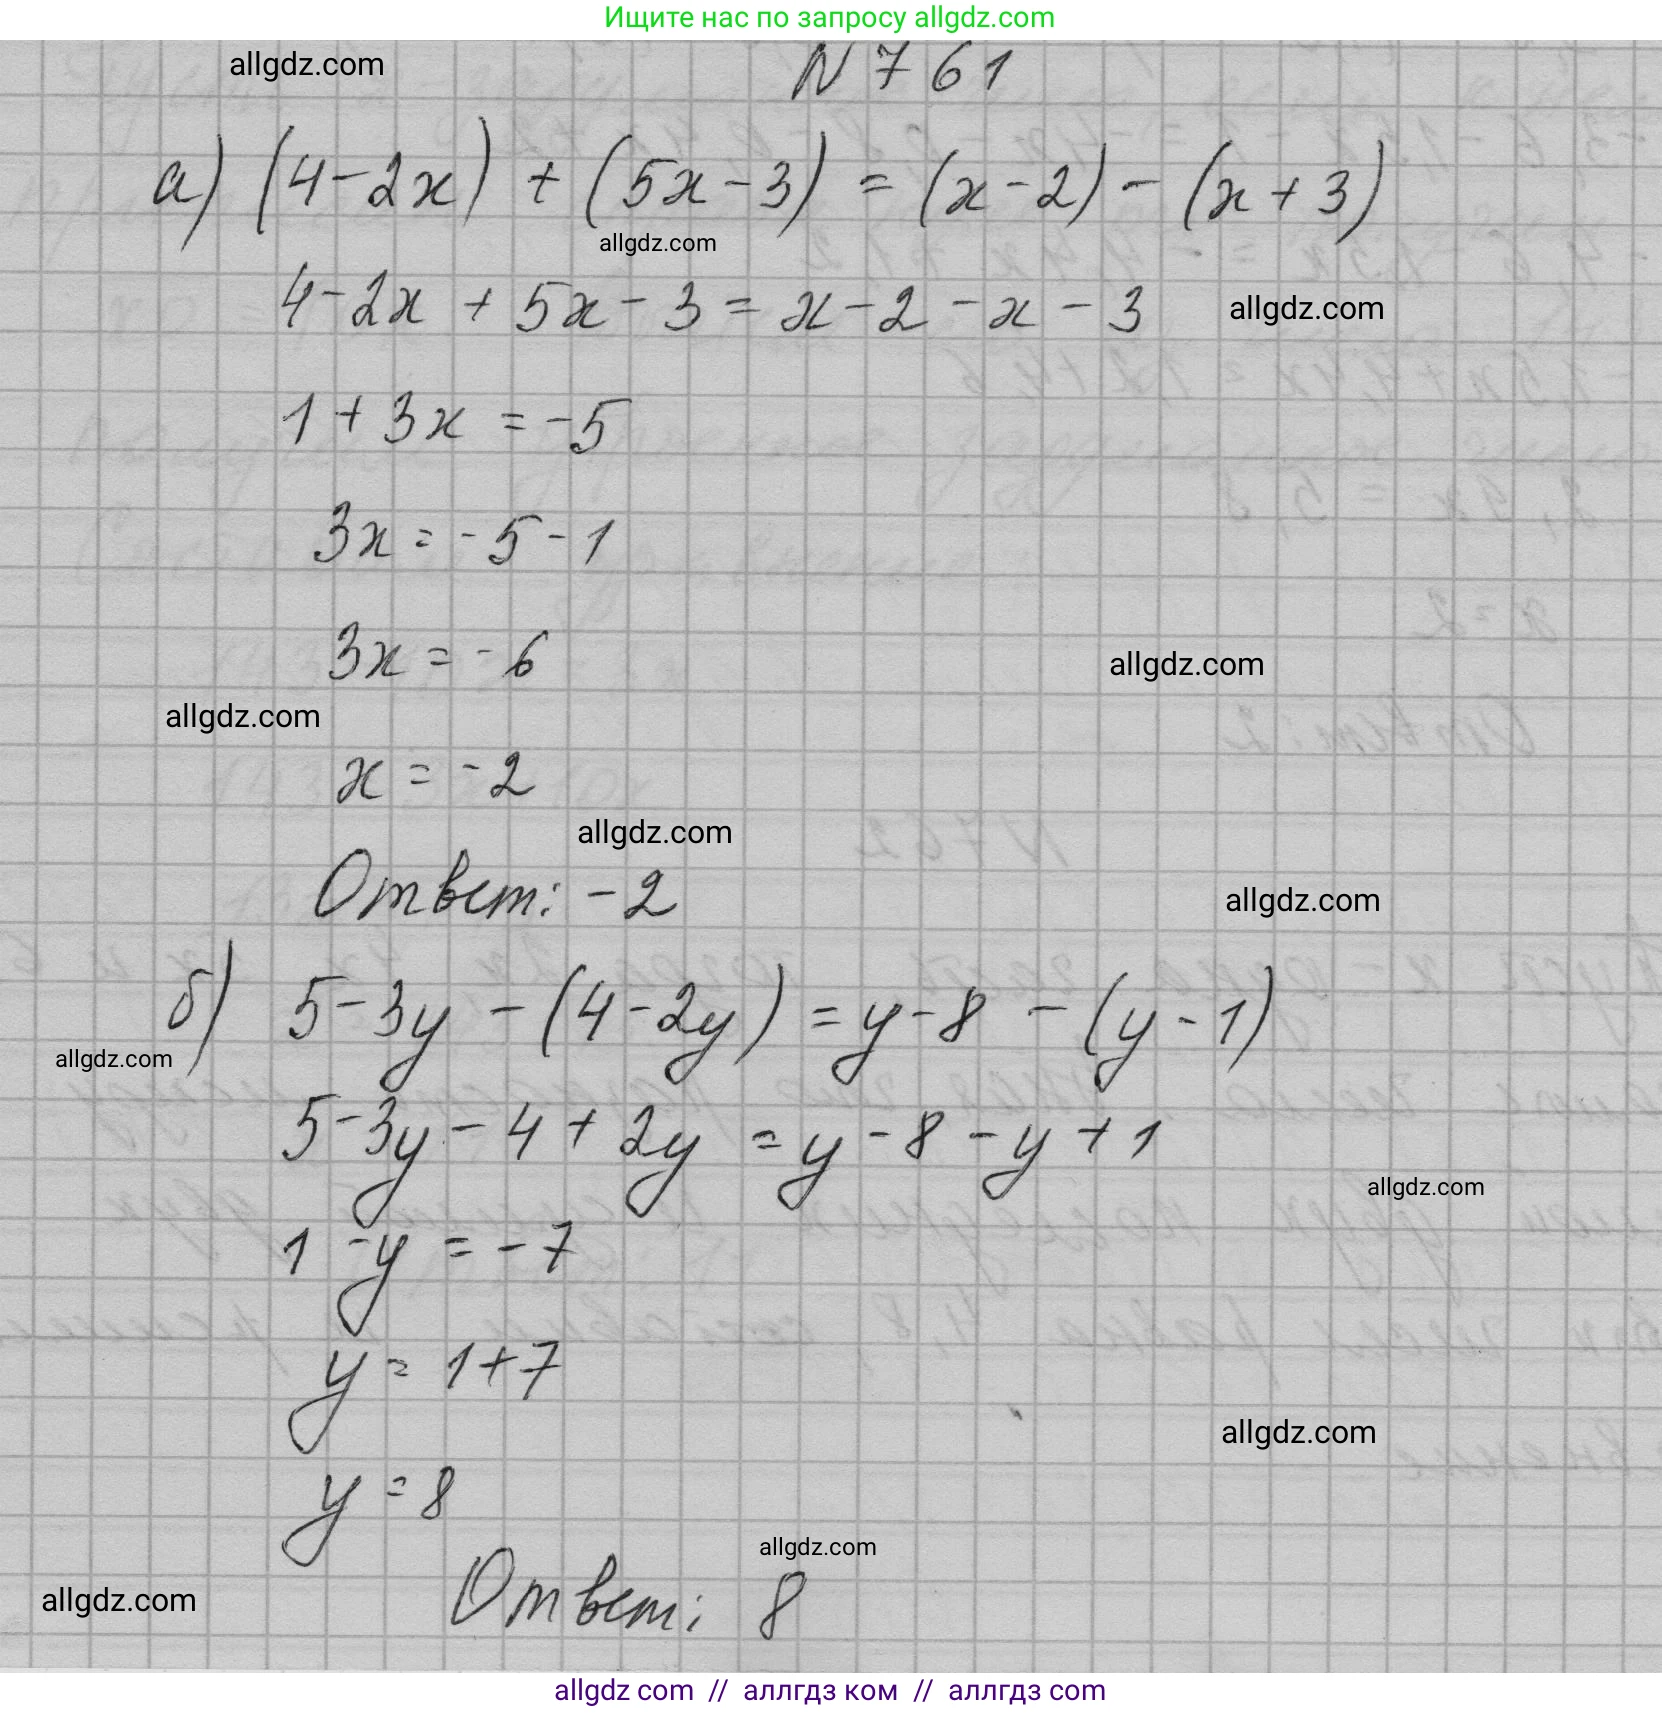 Ищите нас по запросу allgdz.com
allgdz.com
N 761
а) (4-2x) + (5x-3) = (x-2) - (x+3)
allgdz.com
4-2x + 5x-3 = x-2-x-3
allgdz.com
1+3x = -5
3x = -5-1
3x = -6
allgdz.com
allgdz.com
x = -2
allgdz.com
Ответ: -2
allgdz.com
б) 5-3y - (4-2y) = y-8 - (y-1)
allgdz.com
5-3y-4+2y = y-8-y+1
allgdz.com
1-y = -7
y = 1+7
allgdz.com
y = 8
allgdz.com
Ответ: 8
allgdz.com
allgdz com // аллгдз ком // аллгдз com